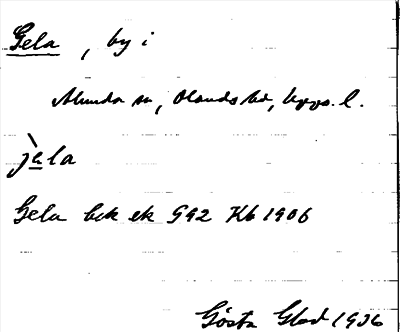 Gela, by i
Alunda sn, Olands hd, Upps. l.
jèla
Gela bek ek 592 Kb 1906
Gösta Glad 1936